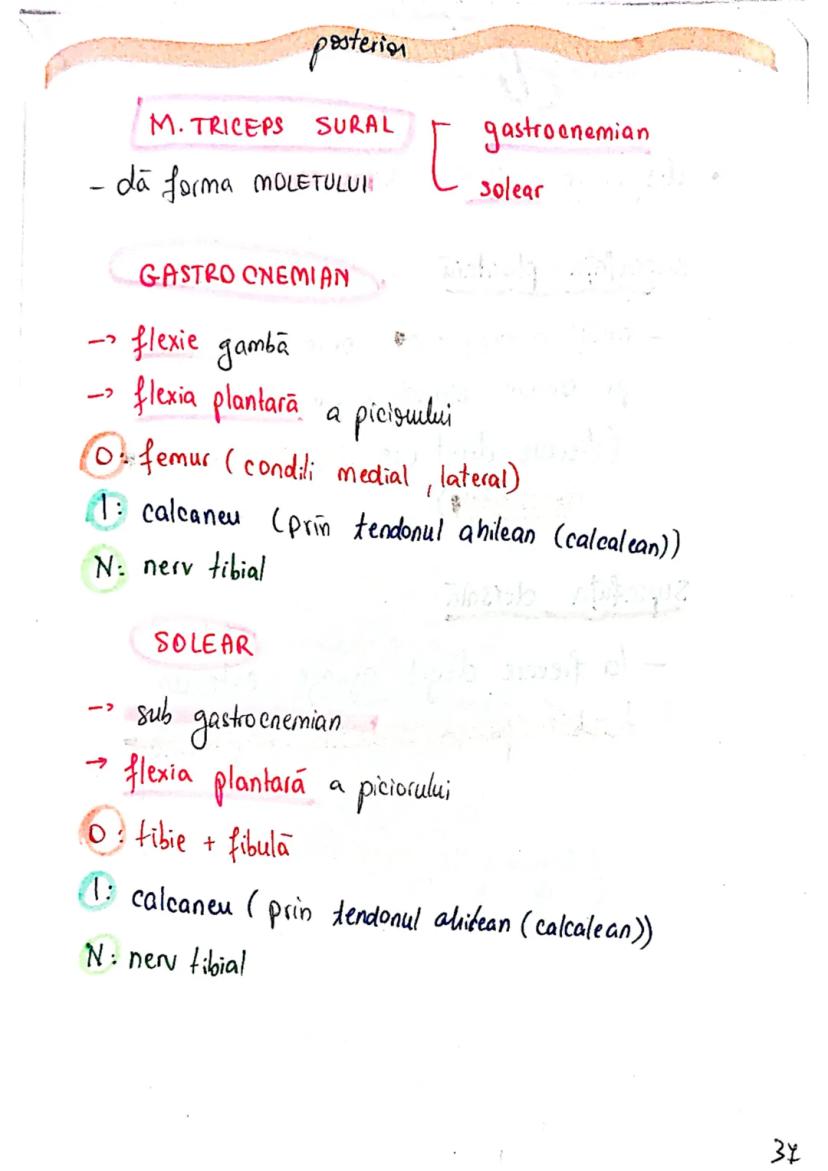 posterior
M. TRICEPS SURAL [ gastrocnemian
solear
- dā forma MOLETULUI
GASTROCNEMIAN
-> flexie gambā
-> flexia plantarā a piciorului
O: femur (condili medial, lateral)
I: calcaneu (prin tendonul ahilean (calcalean))
N: nerv tibial
SOLEAR
-> sub gastrocnemian
-> flexia plantarā a piciorului
O: tibie + fibulā
I: calcaneu (prin tendonul ahilean (calcalean))
N: nerv tibial
37